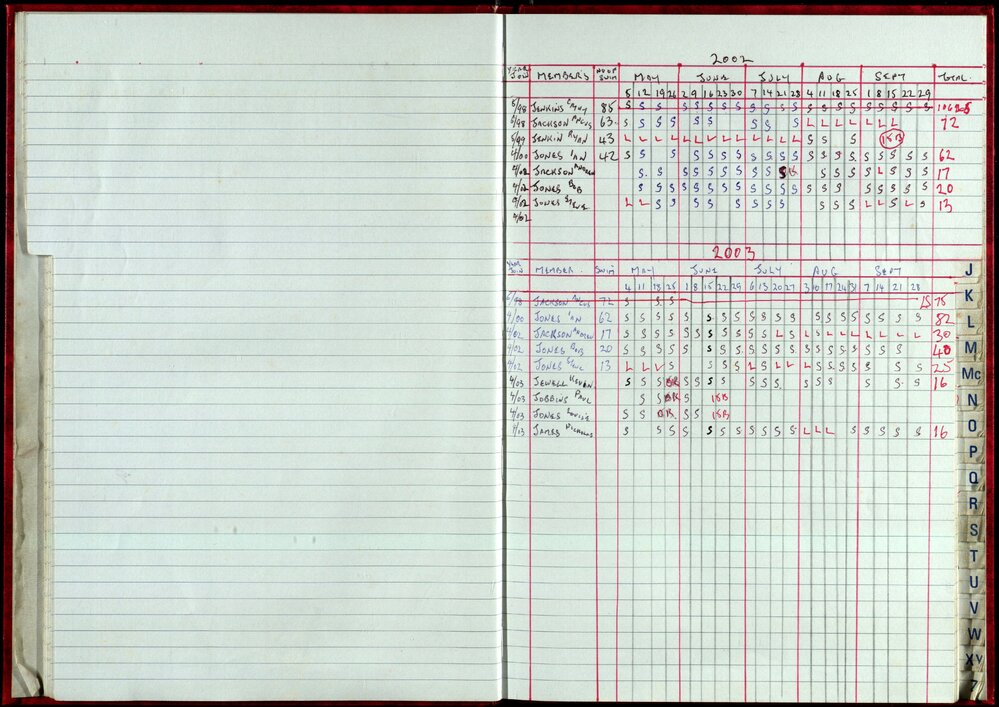 2002
YEAR JOIN MEMBERS NO OF SWIM MAY JUNE JULY AUG SEPT TOTAL
5 12 19 26 2 9 16 23 30 7 14 21 28 4 11 18 25 1 8 15 22 29
5/98 JENKINS CATHY 85 S S S S S S S S S S S S S S S S S S S S S S
5/98 JACKSON ANGUS 63 S S S S S S S S S L L L L L L L 72
5/99 JENKIN RYAN 43 L L L L L L L L L L L L L S S S ISB
4/00 JONES IAN 42 S S S S S S S S S S S S S S S S S S S S S 62
4/02 JACKSON ANDREW S S S S S S S S S S S S S S S L S S S 17
4/02 JONES BOB S S S S S S S S S S S S S S S S S S S S 20
4/02 JONES STEVE L L S S S S S S S S S S S L L S L S 13
4/02
2003
YEAR JOIN MEMBER SWIM MAY JUNE JULY AUG SEPT
4 11 18 25 1 8 15 22 29 6 13 20 27 3 10 17 24 31 7 14 21 28
5/98 JACKSON ANGUS 72 S S S 75
4/00 JONES IAN 62 S S S S S S S S S S S S S S S S S S S S S 82
4/02 JACKSON ANDREW 17 S S S S S S S S S S S L S L S L L L L L L L 30
4/02 JONES BOB 20 S S S S S S S S S S S S S S S S S S S S 40
4/02 JONES STEVE 13 L L L S S S S L S L L L S S S S S S S 25
4/03 JEWELL KEVIN S S S S S S S S S S S S S S S S 16
4/03 JOBBINS PAUL S S S ISB
4/03 JONES LOUISE S S S S ISB
4/13 JAMES NICHOLAS S S S S S S S S S S S S L L L S S S S S 16
J
K
L
M
Mc
N
O
P
Q
R
S
T
U
V
W
XY
Z